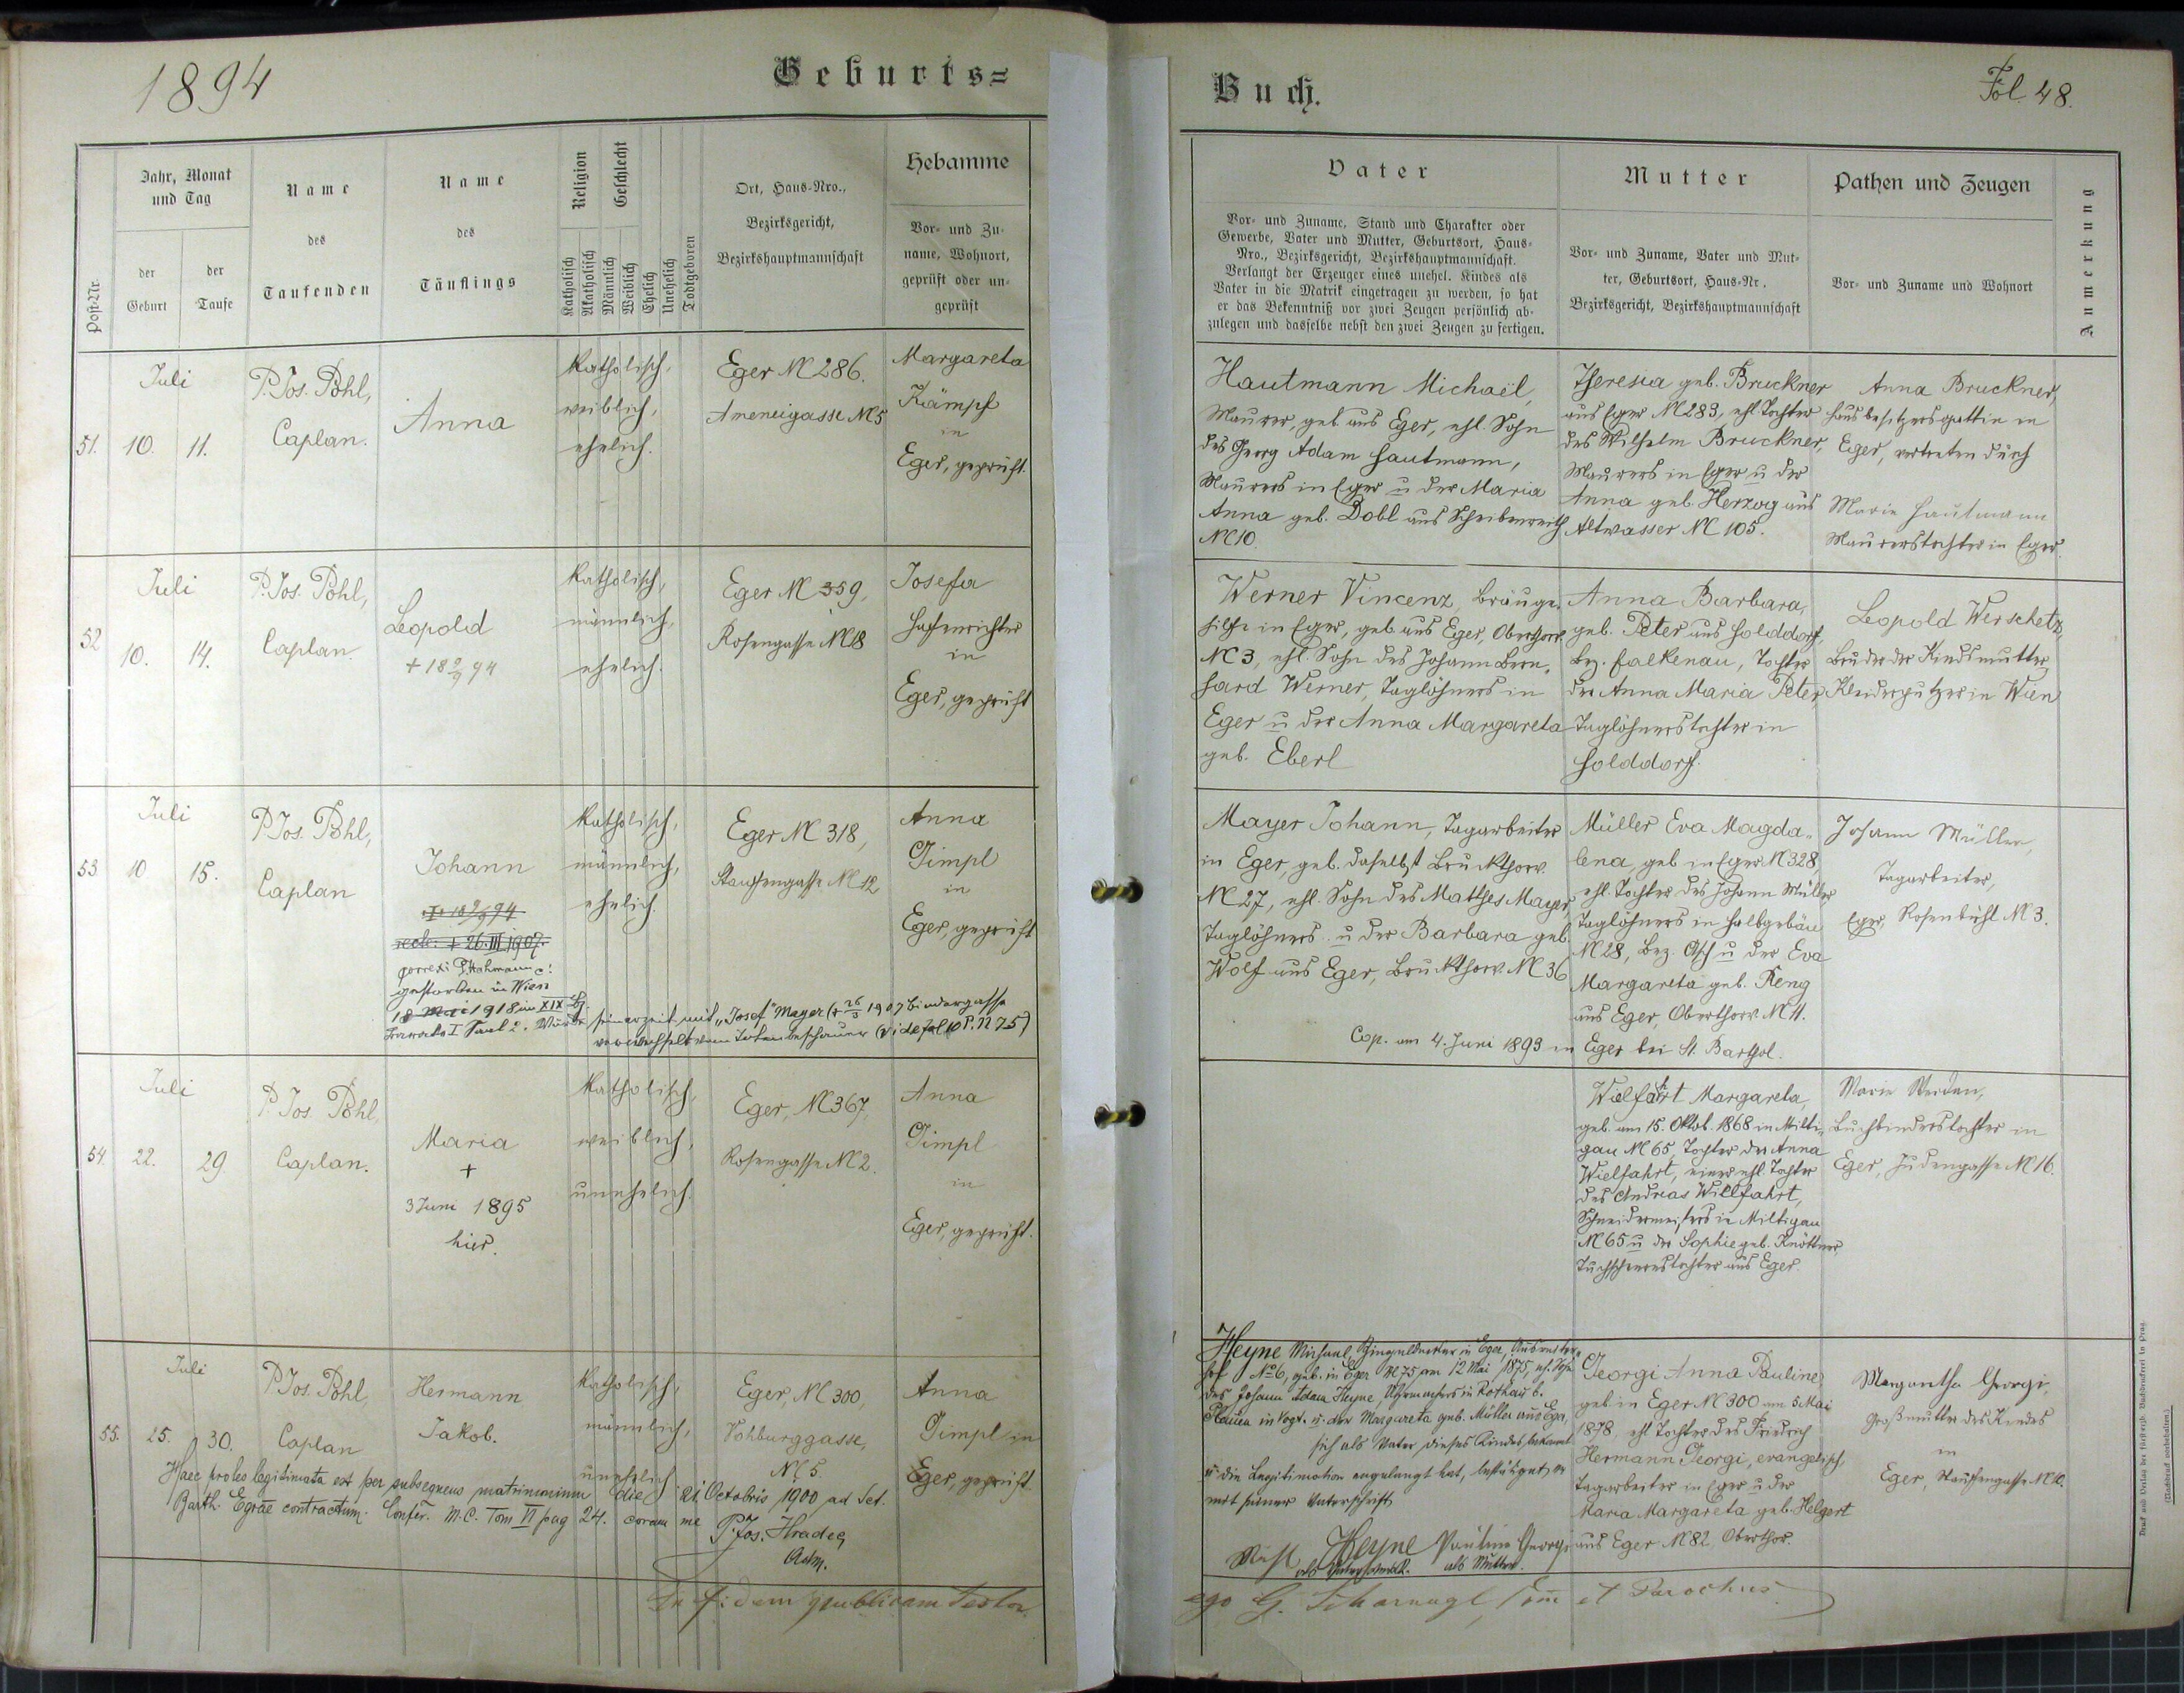 1894
Geburts=
Buch.
Fol. 48.
Post-Nr.
Jahr, Monat
und Tag
der
Geburt
der
Taufe
Name
des
Taufenden
Name
des
Täuflings
Religion
Geschlecht
Katholisch
Akatholisch
Männlich
Weiblich
Ehelich
Unehelich
Todtgeboren
Ort, Haus-Nro.,
Bezirksgericht,
Bezirkshauptmannschaft
Hebamme
Vor- und Zu-
name, Wohnort,
geprüft oder un-
geprüft
Vater
Vor- und Zuname, Stand und Charakter oder
Gewerbe, Vater und Mutter, Geburtsort, Haus-
Nro., Bezirksgericht, Bezirkshauptmannschaft.
Verlangt der Erzeuger eines unehel. Kindes als
Vater in die Matrik eingetragen zu werden, so hat
er das Bekenntniß vor zwei Zeugen persönlich ab-
zulegen und dasselbe nebst den zwei Zeugen zu fertigen.
Mutter
Vor- und Zuname, Vater und Mut-
ter, Geburtsort, Haus-Nr.
Bezirksgericht, Bezirkshauptmannschaft
Pathen und Zeugen
Vor- und Zuname und Wohnort
Anmerkung
51.
Juli
10. 11.
P. Jos. Pohl,
Caplan.
Anna
Katholisch,
weiblich,
ehelich.
Eger N 286.
Ameneigasse N 5
Margareta
Kämpf
in
Eger, geprüft.
Hautmann Michael,
Maurer, geb. aus Eger, ehl. Sohn
des Georg Adam Hautmann,
Maurers in Eger u der Maria
Anna geb. Dobl aus Scheibenreuth
N 10.
Theresia geb. Bruckner
aus Eger N 283, ehl. Tochter
des Wilhelm Bruckner,
Maurers in Eger u der
Anna geb. Herzog aus
Altwasser N 105.
Anna Bruckner,
Hausbesitzersgattin in
Eger, vertreten durch
Marie Hautmann
Maurerstochter in Eger.
52
Juli
10. 14.
P. Jos. Pohl,
Caplan
Leopold
+ 18 9/9 94
Katholisch,
männlich,
ehelich.
Eger N 359,
Rosengasse N 18
Josefa
Hafenrichter
in
Eger, geprüft
Werner Vincenz, Bräuge-
hilfe in Eger, geb. aus Eger, Oberthorv.
N 3, ehl. Sohn des Johann Bern-
hard Werner, Taglöhners in
Eger u der Anna Margareta
geb. Eberl
Anna Barbara,
geb. Peter aus Golddorf,
Bez. Falkenau, Tochter
der Anna Maria Peter,
Taglöhnerstochter in
Golddorf.
Leopold Werschetz,
Bruder der Kindsmutter,
Kleiderputzer in Wien
53
Juli
10 15.
P. Jos. Pohl,
Caplan
Johann
+ 18 9/9 94
recte: + 26. III 1907.
correxi P. Hahmann
gestorben in Wien
18 Mai 1918 im XIX Bz.
Katholisch,
männlich,
ehelich.
Eger N 318,
Stauffengasse N 12
Anna
Gimpl
in
Eger, geprüft
seinerzeit mit "Josef" Mayer (+ 26/3 1907 Bindergasse
verwechselt vom Totenbeschauer (vide fol 10 P. N 75)
Mayer Johann, Tagarbeiter
in Eger, geb. daselbst Bruckthorv.
N 27, ehl. Sohn des Mathes Mayer,
Taglöhners u der Barbara geb.
Wolf aus Eger, Bruckthorv. N 36
Müller Eva Magda-
lena, geb. in Eger N 328,
ehl. Tochter des Johann Müller
Taglöhners in Halbgebäu
N 28, Bez. Asch u der Eva
Margareta geb. Reng
aus Eger, Oberthorv. N 11.
Cop. am 4. Juni 1893 in Eger bei St. Barthol.
Johann Müller,
Tagarbeiter,
Eger, Rosenbühl N 3.
54.
Juli
22. 29.
P. Jos. Pohl,
Caplan.
Maria
+
3 Juni 1895
hier.
Katholisch,
weiblich,
unehelich.
Eger, N 367,
Rosengasse N 2.
Anna
Gimpl
in
Eger, geprüft.
Wielfahrt Margareta,
geb. am 15. Oktob. 1868 in Milti-
gau N 65, Tochter der Anna
Wielfahrt, einer ehl. Tochter
des Andreas Willfahrt,
Schneidermeisters in Miltigau
N 65 u der Sophie geb. Knöttner,
Tuchscherertochter aus Eger.
Marie Werdan,
Buchbinderstochter in
Eger, Judengasse N 16.
55.
Juli
25. 30.
P. Jos. Pohl,
Caplan
Hermann
Jakob.
Katholisch,
männlich,
unehelich
Eger, N 300,
Vohburggasse,
N 5.
Anna
Gimpl in
Eger, geprüft.
Haec proles legitimata est per subsequens matrimonium die 21. Octobris 1900 ad Sct.
Barth. Egrae contractum. Confer. M. C. Tom VI pag 24. coram me
P. Jos. Hradeg
Adm.
Heyne Michael, Schieferdecker in Eger,
hof No 6, geb. in Eger N 75 am 12 Mai 1875, eh. Sohn
des Johann Adam Heyne, Uhrmachers in
Plauen in Vogt. u. der Margareta geb. Müller aus Eger,
sich als Vater dieses Kindes bekannt
u. die Legitimation angelangt hat, bestätiget er
mit seiner Unterschrift
Mich. Heyne
als Vater
Pauline Georgi
als Mutter.
Georgi Anna Pauline,
geb. in Eger N 300 am 5 Mai
1878, ehl. Tochter des Friedrich
Hermann Georgi, evangelisch,
Tagarbeiter in Eger u der
Maria Margareta geb. Helgert
aus Eger N 82, Oberthor.
Margaretha Georgi,
Großmutter des Kindes
in
Eger, Stauffengasse N 10.
In fidem publicam testor
ego G. Scharnagl, Com et Parochus.
Druck und Verlag der fürsterzb. Buchdruckerei in Prag.
(Nachdruck vorbehalten.)